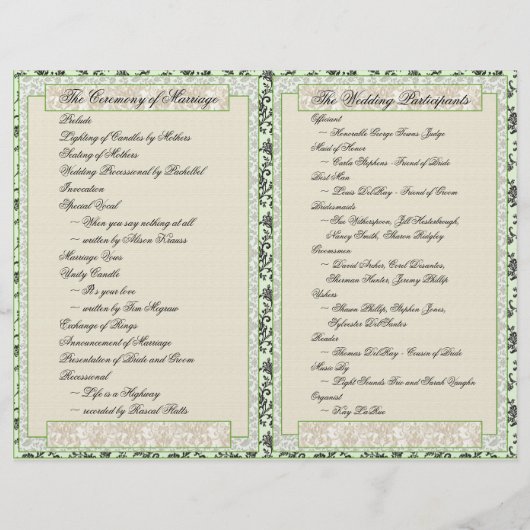 The Ceremony of Marriage
Prelude
Lighting of Candles by Mothers
Seating of Mothers
Wedding Processional by Pachelbel
Invocation
Special Vocal
~ When you say nothing at all
~ written by Alison Krauss
Marriage Vows
Unity Candle
~ It's your love
~ written by Tim Mcgraw
Exchange of Rings
Announcement of Marriage
Presentation of Bride and Groom
Recessional
~ Life is a Highway
~ recorded by Rascal Flatts
The Wedding Participants
Officiant
~ Honorable George Towns Judge
Maid of Honor
~ Carla Stephens - Friend of Bride
Best Man
~ Louis DelRay - Friend of Groom
Bridesmaids
~ Sue Witherspoon, Jill Hasterbrough,
Nancy Smith, Sharon Ridgley
Groomsmen
~ David Archer, Corel Desantes,
Sherman Hunter, Jeremy Phillip
Ushers
~ Shawn Phillip, Stephen Jones,
Sylvester DelSantes
Reader
~ Thomas DelRay - Cousin of Bride
Music By
~ Light Sounds Trio and Sarah Vaughn
Organist
~ Kay LaRue